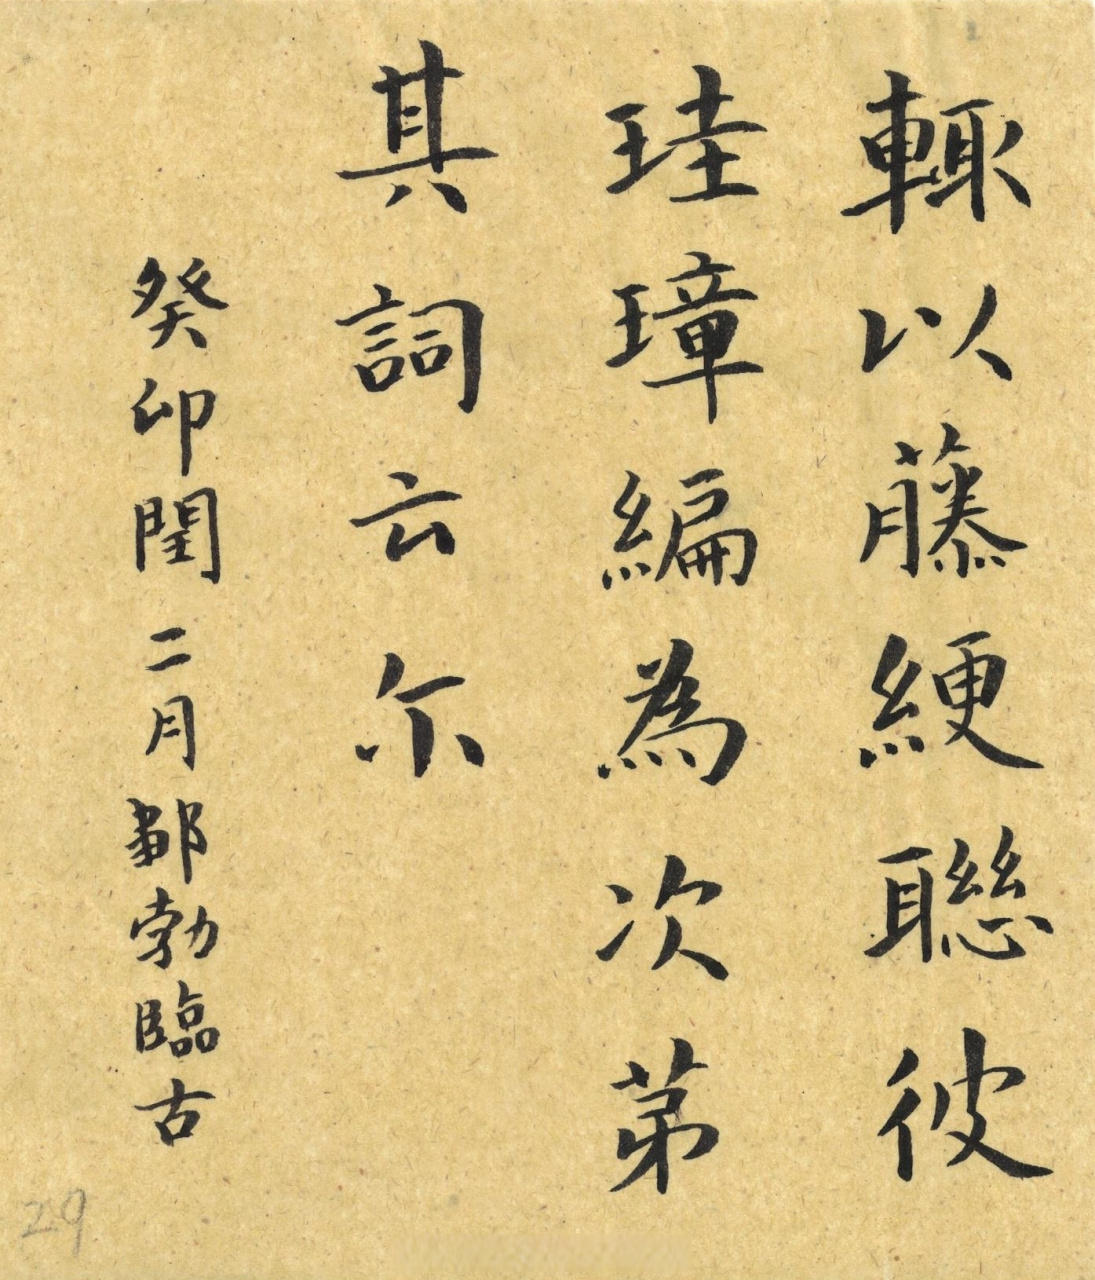 輙以藤綆聯彼
珪璋編為次苐
其詞云尒
癸卯閏二月鄀勃臨古
29